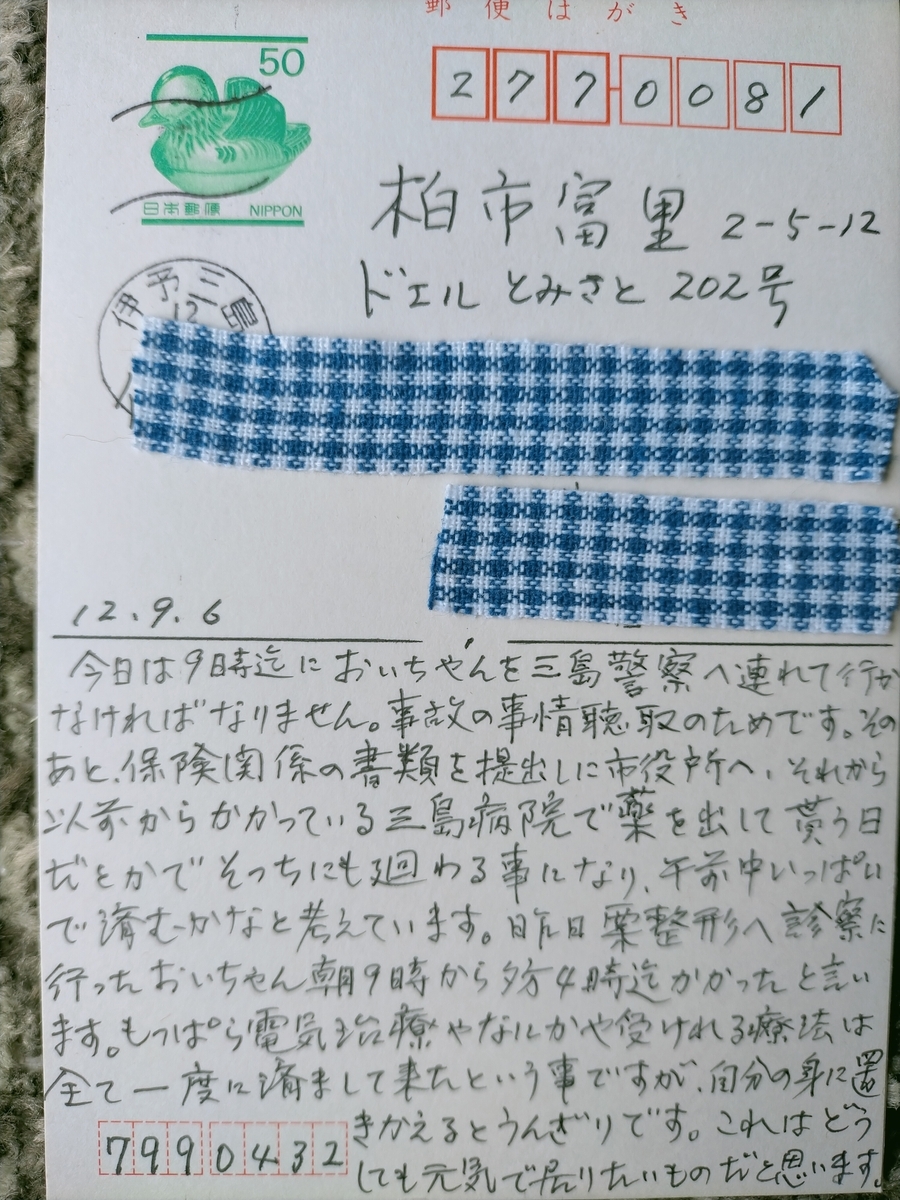 郵便はがき
50
日本郵便 NIPPON
2770081
柏市富里 2-5-12
ドエルとみさと 202号
伊予三島
12
12.9.6
今日は9時迄においちゃんを三島警察へ連れて行か
なければなりません。事故の事情聴取のためです。その
あと、保険関係の書類を提出しに市役所へ、それから
以前からかかっている三島病院で薬を出して貰う日
だとかでそっちにも廻わる事になり、午前中いっぱい
で済むかなと考えています。昨日粟整形へ診察に
行ったおいちゃん朝9時から夕方4時迄かかったと言い
ます。もっぱら電気治療やなんかや受けれる療法は
全て一度に済まして来たという事ですが、自分の身に置
きかえるとうんざりです。これはどう
しても元気で居りたいものだと思います。
7990432